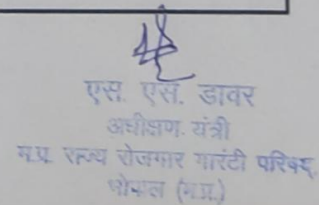 एस. एस. डावर
अधीक्षण यंत्री
म.प्र. राज्य रोजगार गारंटी परिषद्
भोपाल (म.प्र.)